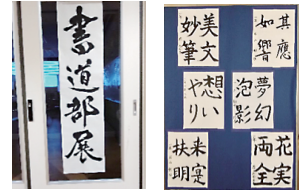 書道部展
其應
如響
美文
妙筆
夢幻
泡影
想い
やり
花実
両全
来
扶明